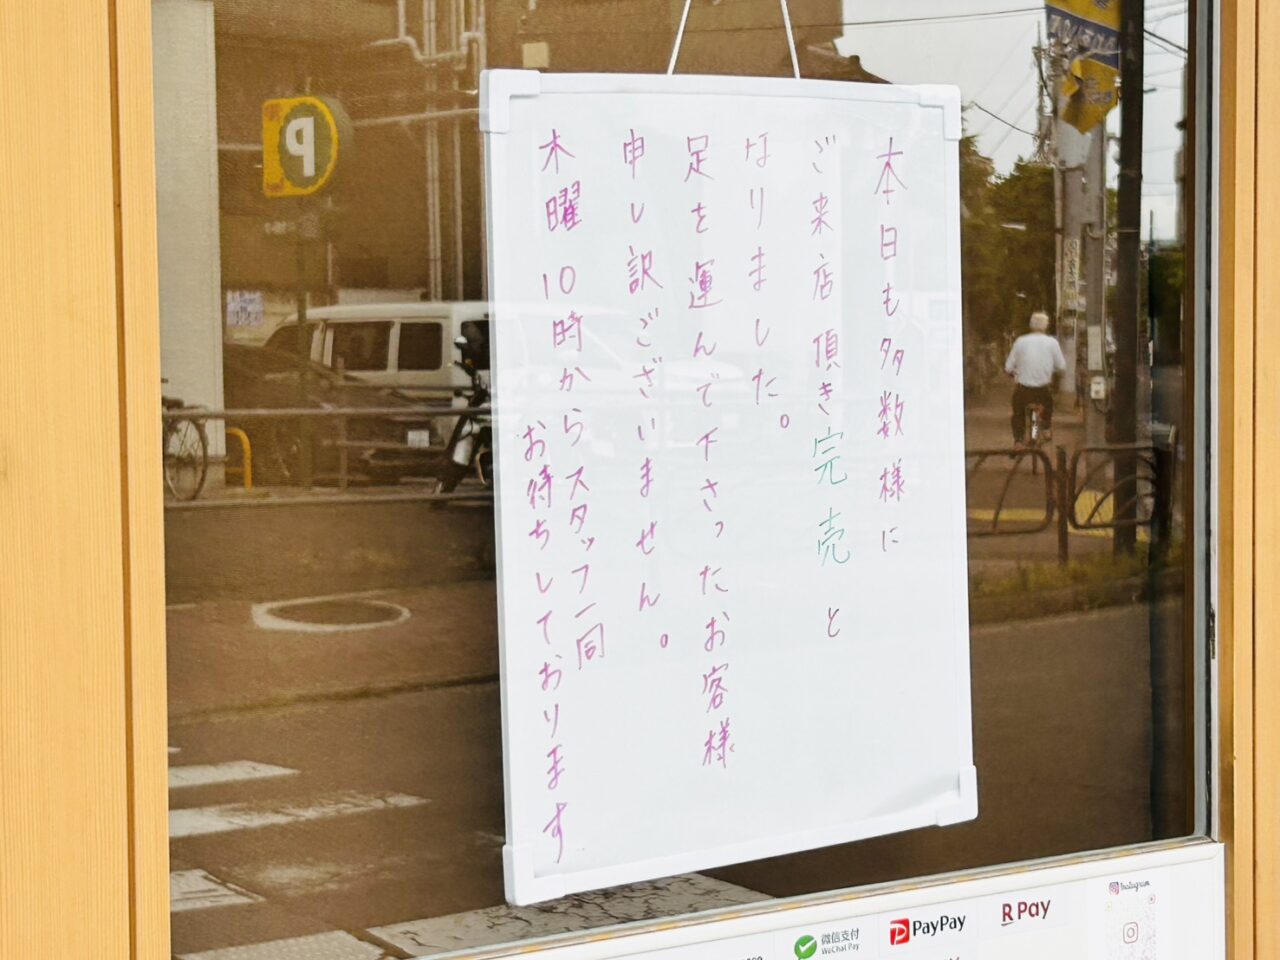 本日も多数様に
ご来店頂き完売と
なりました。
足を運んで下さったお客様
申し訳ございません。
木曜10時からスタッフ一同
お待ちしております
P
微信支付
WeChat Pay
PayPay
R Pay
Instagram